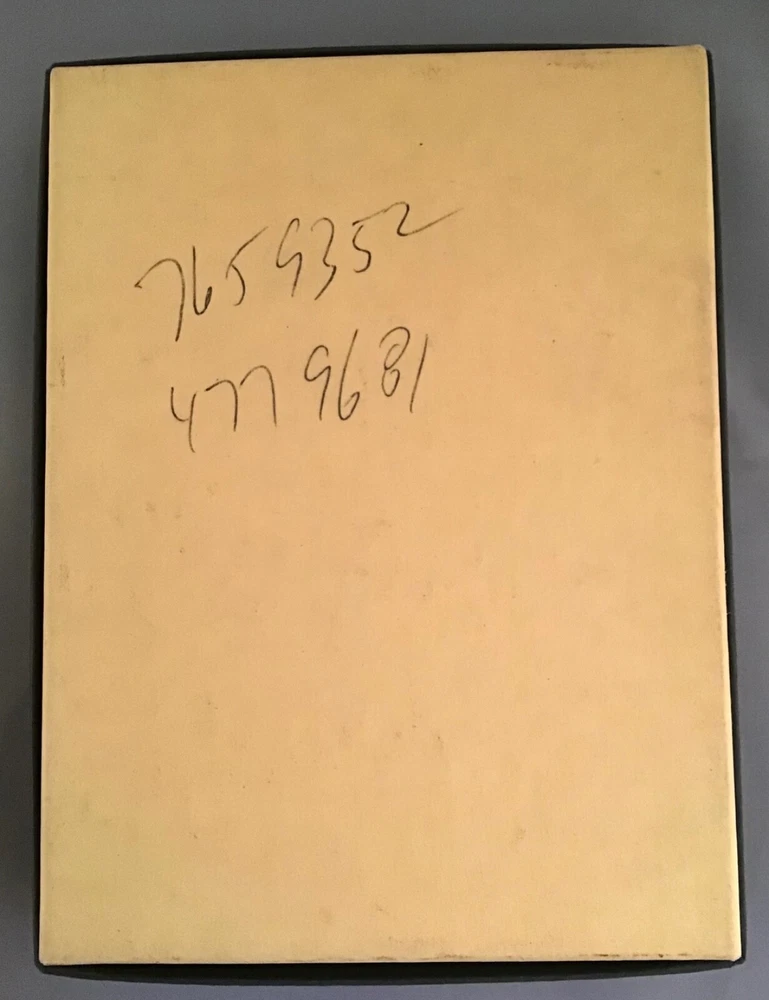 7659352
4779681